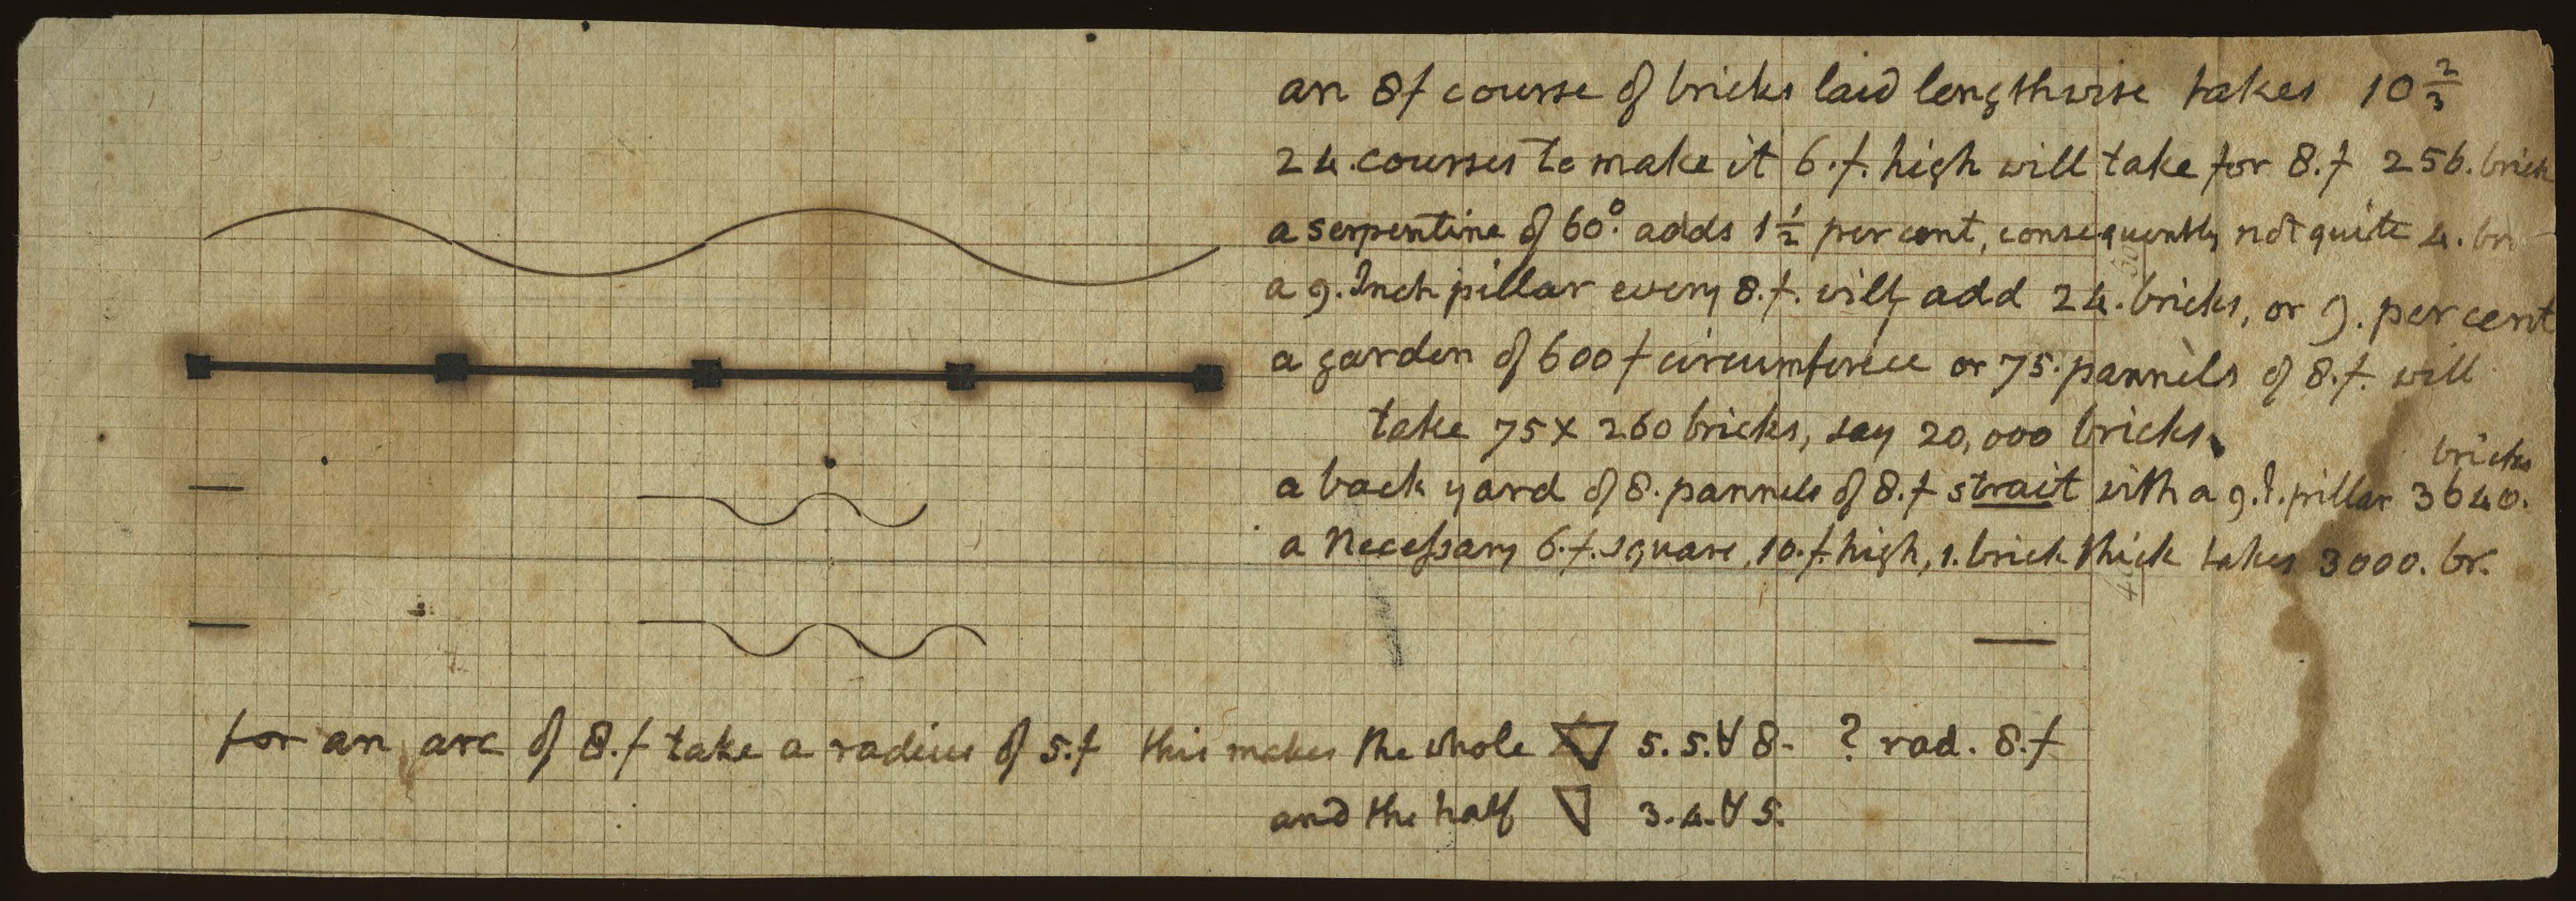 an 8f course of bricks laid lengthwise takes 10 2/3
24. courses to make it 6.f. high will take for 8.f 256. brick
a serpentine of 60°. adds 1 1/2 per cent, consequently not quite 4. br
a 9. Inch pillar every 8.f. will add 24. bricks, or 9. per cent
a garden of 600 f circumference or 75. pannels of 8.f. will
take 75 x 260 bricks, say 20,000 bricks.
bricks
a back yard of 8. pannels of 8.f strait with a 9.I. pillar 3640.
a Necessary 6.f. square, 10.f. high, 1. brick thick takes 3000. br.
for an arc of 8.f take a radius of 5.f this makes the whole ▽ 5.5.∀ 8. ? rad. 8.f
and the half ▽ 3.4.∀ 5.